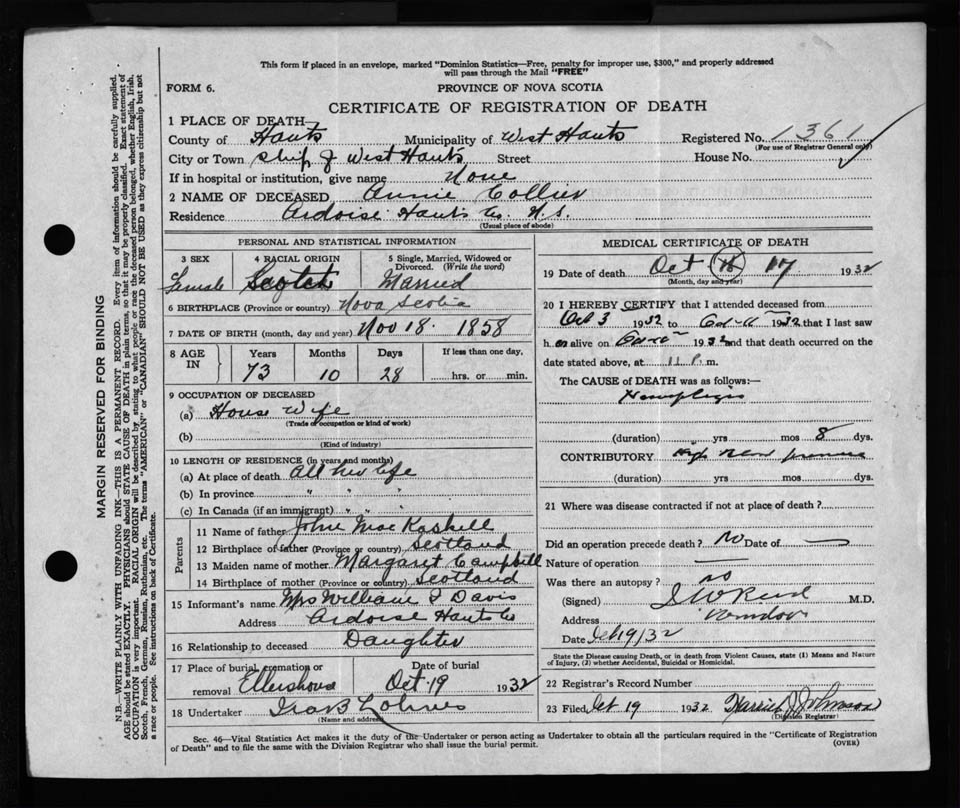 This form if placed in an envelope, marked "Dominion Statistics—Free, penalty for improper use, $300," and properly addressed
will pass through the Mail "FREE"
FORM 6.
PROVINCE OF NOVA SCOTIA
CERTIFICATE OF REGISTRATION OF DEATH
1 PLACE OF DEATH—
County of Hants Municipality of West Hants Registered No. 1361
(For use of Registrar General only)
City or Town West Hants Street House No.
If in hospital or institution, give name None
2 NAME OF DECEASED Annie Collier
Residence Ardoise Hants Co. N.S.
(Usual place of abode)
PERSONAL AND STATISTICAL INFORMATION
3 SEX 4 RACIAL ORIGIN 5 Single, Married, Widowed or
Divorced. (Write the word)
Female Scotch Married
6 BIRTHPLACE (Province or country) Nova Scotia
7 DATE OF BIRTH (month, day and year) Nov 18. 1858
8 AGE IN Years Months Days If less than one day,
73 10 28 hrs. or min.
9 OCCUPATION OF DECEASED
(a) House Wife
(Trade or occupation or kind of work)
(b)
(Kind of industry)
10 LENGTH OF RESIDENCE (in years and months)
(a) At place of death All her life
(b) In province " " "
(c) In Canada (if an immigrant) " " "
Parents
11 Name of father John MacKaskell
12 Birthplace of father (Province or country) Scotland
13 Maiden name of mother Margaret Campbell
14 Birthplace of mother (Province or country) Scotland
15 Informant's name Mrs William J Davis
Address Ardoise Hants Co
16 Relationship to deceased Daughter
17 Place of burial, cremation or removal Date of burial
Ellershouse Oct 19 1932
18 Undertaker Ira B Lohnes
(Name and address)
MEDICAL CERTIFICATE OF DEATH
19 Date of death Oct 17 1932
(Month, day and year)
20 I HEREBY CERTIFY that I attended deceased from
Oct 3 1932 to Oct 1932 that I last saw
h er alive on Oct 1932 and that death occurred on the
date stated above, at 11 P. m.
The CAUSE of DEATH was as follows:—
Hemiplegia
(duration) yrs mos 8 dys.
CONTRIBUTORY High
(duration) yrs mos dys.
21 Where was disease contracted if not at place of death?
Did an operation precede death? No Date of —
Nature of operation —
Was there an autopsy? no
(Signed) M.D.
Address Windsor
Date 19/32
State the Disease causing Death, or in death from Violent Causes, state (1) Means and Nature
of Injury, (2) whether Accidental, Suicidal or Homicidal.
22 Registrar's Record Number
23 Filed, Oct 19 1932 Harriet J Johnson
(Division Registrar)
Sec. 46—Vital Statistics Act makes it the duty of the Undertaker or person acting as Undertaker to obtain all the particulars required in the "Certificate of Registration
of Death" and to file the same with the Division Registrar who shall issue the burial permit.
(OVER)
MARGIN RESERVED FOR BINDING
N.B.—WRITE PLAINLY WITH UNFADING INK—THIS IS A PERMANENT RECORD. Every item of information should be carefully supplied.
AGE should be stated EXACTLY. PHYSICIANS should STATE CAUSE OF DEATH in plain terms, so that it may be properly classified. Exact statement of
OCCUPATION is very important. RACIAL ORIGIN will be described by stating to what people or race the deceased person belonged, whether English, Irish,
Scotch, French, German, Russian, Ruthenian, etc. The terms "AMERICAN" or "CANADIAN" SHOULD NOT BE USED as they express citizenship but not
a race or people. See instructions on back of Certificate.